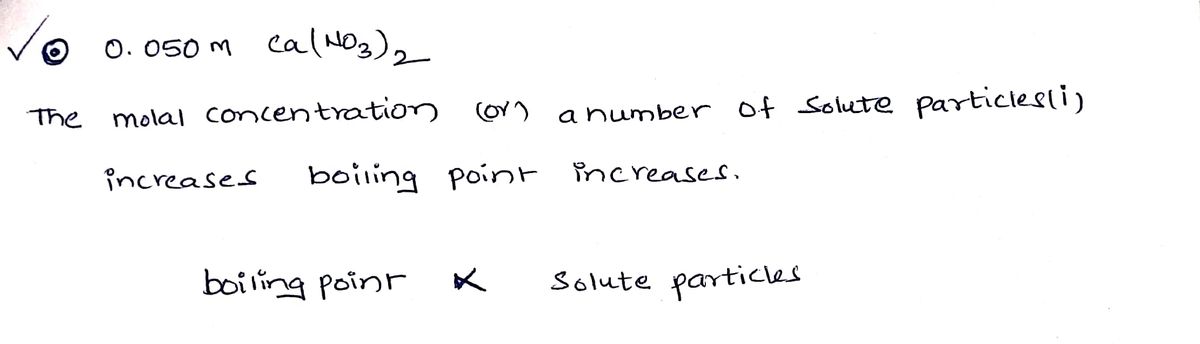 ✓⊙ 0.050 m Ca(NO₃)₂
The molal concentration (or) a number of solute particles(i)
increases boiling point increases.
boiling point ∝ solute particles